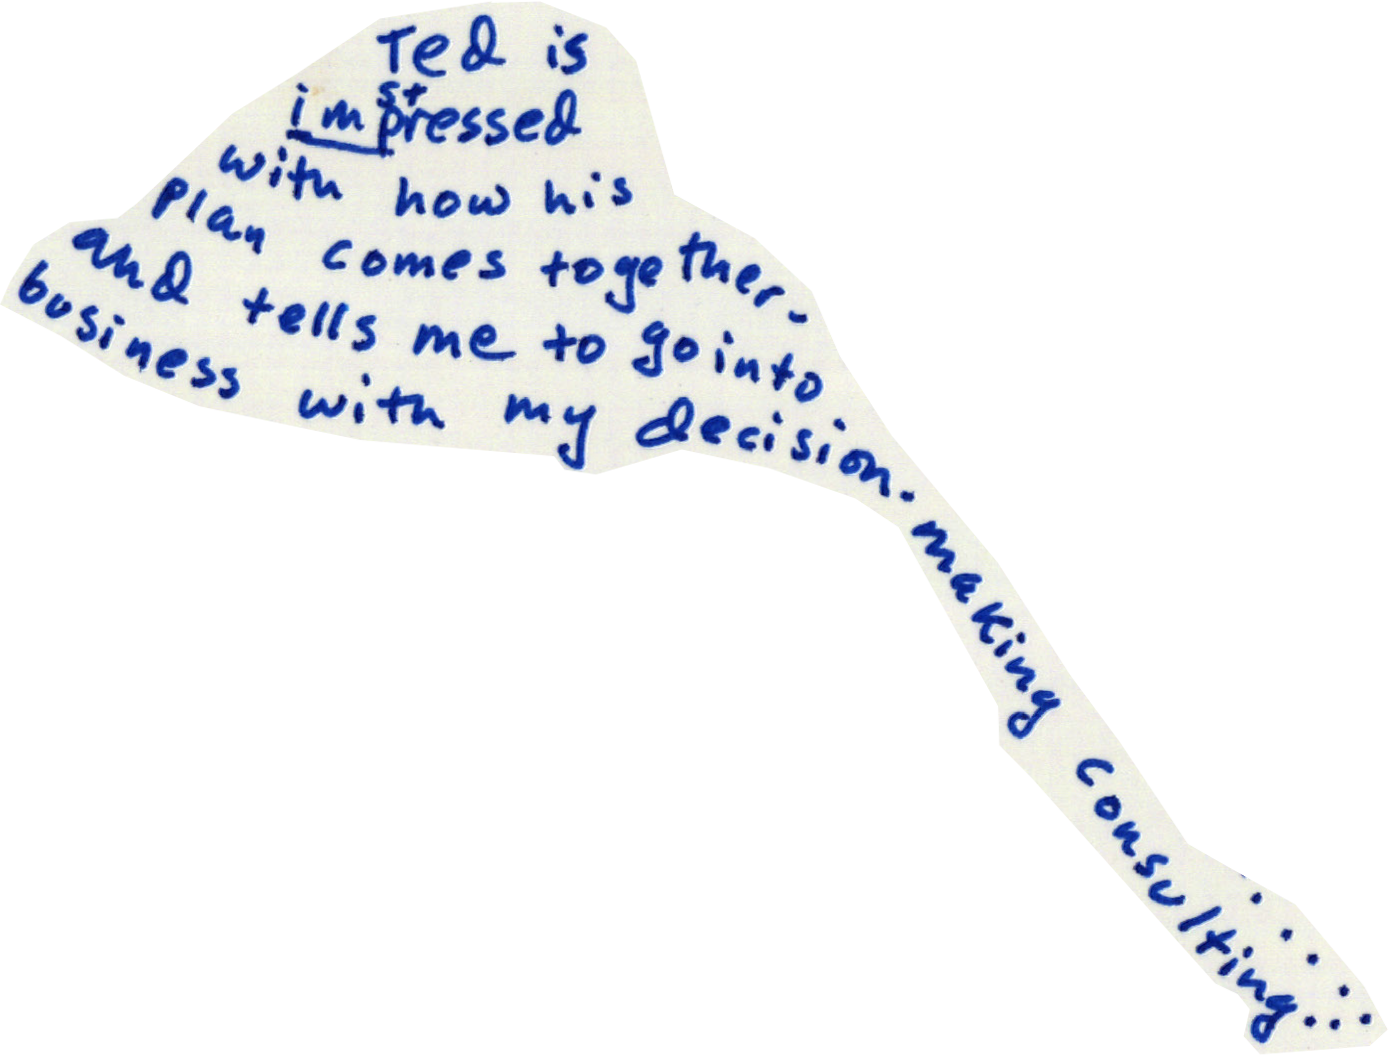 Ted is
st
impressed
with how his
plan comes together-
and tells me to go into
business with my decision.
making consulting...